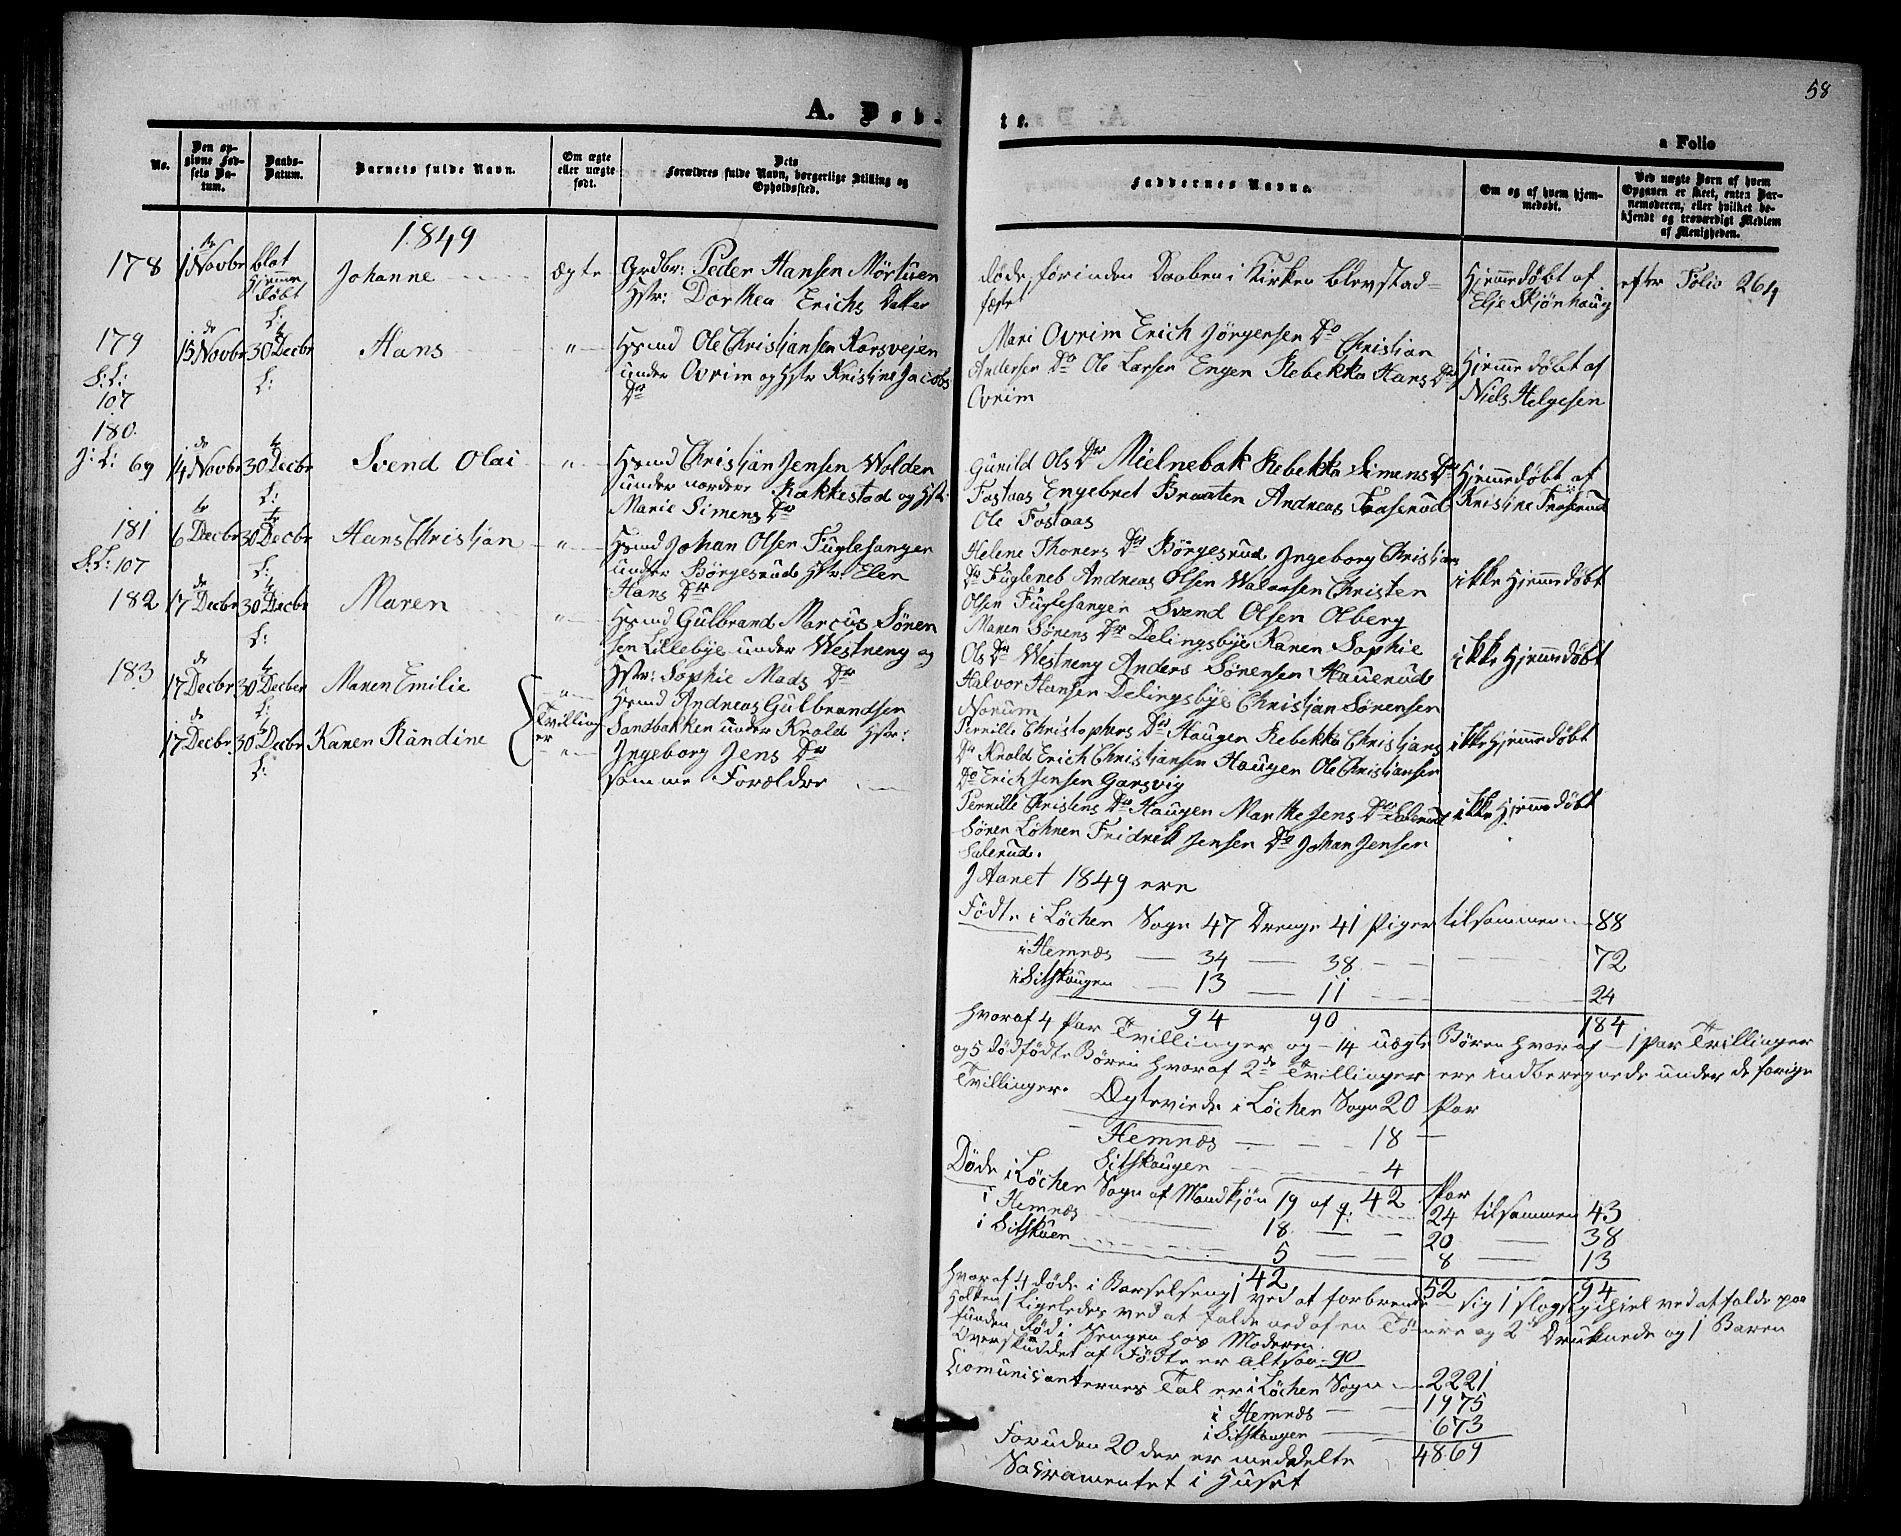 58
A. Døb-
te.
a Folio
No.
Den op-
givne Fød-
sels Da-
tum.
Daabs-
Datum.
Barnets fulde Navn.
Om ægte
eller uægte
født.
Dets
Forældres fulde Navn, borgerlige Stilling og
Opholdssted.
Faddernes Navne.
Om og af hvem hjem-
medøbt.
Ved uægte Børn af hvem
Opgaven er skeet, enten Bar-
nemoderen, eller hvilket be-
kjendt og troværdigt Medlem
af Menigheden.
1849
178
1 Novbr
blot
Hjemme
døbt
Johanne
ægte
Grdbr: Peder Hansen Mørtuen
Hstr: Dorthea Erichs Datter
døde forinden Daaben i Kirken blev stad-
fæstet
Hjemmedøbt af
Elje Skjønhaug
efter Folio 264
179
S: L:
107
15 Novbr
30 Decbr
L:
Hans
"
Hsmd Ole Christjansen Korsvejen
under Ovrim og Hstr Kristine Jacobs
Dtr
Mari Ovrim Erich Jørgensen Do Christian
Andersen Do Ole Larsen Engen Rebekka Hans Dtr
Ovrim
Hjemmedøbt af
Niels Helgesen
180
J: L: 69
14 Novbr
30 Decbr
L:
Svend Olai
"
Hsmd Christjan Jensen Wolden
under nordre Rakkestad og Hstr:
Marie Simens Dtr
Gunild Ols Dtr Mielnebak Rebekka Simens Dtr
Fostaas Engebret Braaten Andreas Fraserud
Ole Fostaas
Hjemmedøbt af
Kristine Fraserud
181
S: L: 107
6 Decbr
30 Decbr
L:
Hans Christian
"
Hsmd Johan Olsen Fuglesanger
under Børgesrud Hstr: Elen
Hans Dtr
Helene Thorers Dtr Børgesrud Ingeborg Christians
Dtr Fugleneb Andreas Olsen Christen
Olsen Fuglesanger Svend Olsen Olberg
ikke Hjemmedøbt
182
17 Decbr
30 Decbr
L:
Maren
"
Hsmd Gulbrand Marcus Søren
sen Lillebye under Westreng og
Hstr: Sophie Mads Dtr
Maren Sørens Dtr Delingsbye Karen Sophie
Ols Dtr Westreng Anders Sørensen Hauerud
Halvor Hansen Delingsbye Christjan Sørensen
Norum
ikke Hjemmedøbt
183
17 Decbr
30 Decber
L:
Maren Emilie
"
Tvilling
er
Hsmd Andreas Gulbrandsen
Sandbakken under Krold Hstr:
Ingeborg Jens Dtr
Pernille Christophers Dtr Haugen Rebekka Christjans
Dtr Krold Erich Christjansen Haugen Ole Christjansen
Do Erich Jensen Garsvig
ikke Hjemmedøbt
17 Decbr
30 Decbr
L:
Karen Randine
"
samme Forældre
Pernille Christens Dtr Haugen Marthe Jens Dtr Salerud
Søren Løhnen Fridrik Jensen Do Johan Jensen
Salerud.
ikke Hjemmedøbt
I Aaret 1849 ere
Fødte i Løchen Sogn 47 Drenge 41 Piger tilsammen 88
i Hemnæs — 34 — 38 72
i Sitskougen 13 — 11 24
94 90 184
hvoraf 4 Par Tvillinger og 14 uægte Børn hvoraf 1 par Tvillinger
og 5 dødfødte Børn hvoraf 2de Tvillinger ere indberegnede under de forige
Tvillinger.
Ægteviede i Løchen Sogn 20 Par
Hemnæs — 18 —
Sitskougen 4
42 Par
Døde i Løchen Sogn af Mandkjøn 19 af q: 24 tilsammen 43
i Hemnæs 18 — 20 — 38
i Sitskuen 5 — 8 — 13
42 52 94
hvoraf 4 døde i Barselseng 1 ved at forbrende sig 1 ved at falde paa
Holken 1 Ligeledes ved at falde ned af en og 2de Druknede og 1 Barn
funden Død i Sengen hos Moderen.
Overskuddet af Fødte er altsaa 90
Comunicanternes Tal er i Løchen Sogn 2221
i Hemnæs 1975
i Sitskougen 673
4869
Foruden 20 der er meddelte
Sacramentet i Huset